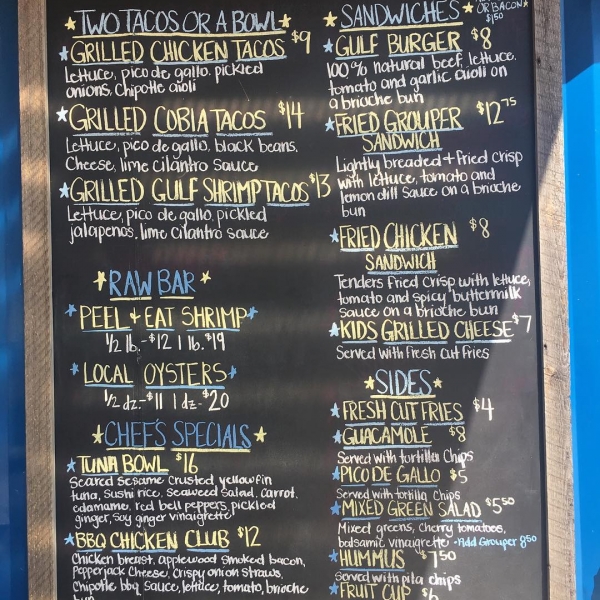 TWO TACOS OR A BOWL
GRILLED CHICKEN TACOS $9
Lettuce, pico de gallo, pickled
onions, Chipotle aioli
GRILLED COBIA TACOS $14
Lettuce, pico de gallo, black beans,
Cheese, lime cilantro sauce
GRILLED GULF SHRIMP TACOS $13
Lettuce, pico de gallo, pickled
jalapenos, lime cilantro sauce
RAW BAR
PEEL & EAT SHRIMP
1/2 lb. - $12 | 1 lb. $19
LOCAL OYSTERS
1/2 dz. - $11 | 1 dz - $20
CHEF'S SPECIALS
TUNA BOWL $16
Seared Sesame Crusted yellowfin
tuna, Sushi rice, seaweed Salad, Carrot,
edamame, red bell peppers, pickled
ginger, Soy ginger vinaigrette
BBQ CHICKEN CLUB $12
Chicken breast, applewood Smoked bacon,
Pepperjack Cheese, Crispy onion Straws,
Chipotle bbq Sauce, lettuce, tomato, brioche
bun
SANDWICHES
OR BACON
$1.50
GULF BURGER $8
100% natural beef, lettuce,
tomato and garlic aioli on
a brioche bun
FRIED GROUPER $12.75
SANDWICH
Lightly breaded & fried crisp
with lettuce, tomato and
lemon dill sauce on a brioche
bun
FRIED CHICKEN $8
SANDWICH
Tenders fried crisp with lettuce,
tomato and spicy buttermilk
sauce on a brioche bun
KIDS GRILLED CHEESE $7
Served with fresh cut fries
SIDES
FRESH CUT FRIES $4
GUACAMOLE $8
Served with tortilla Chips
PICO DE GALLO $5
Served with tortilla Chips
MIXED GREEN SALAD $5.50
Mixed greens, cherry tomatoes,
balsamic vinaigrette - Add Grouper 8.50
HUMMUS $7.50
Served with pita chips
FRUIT CUP $6